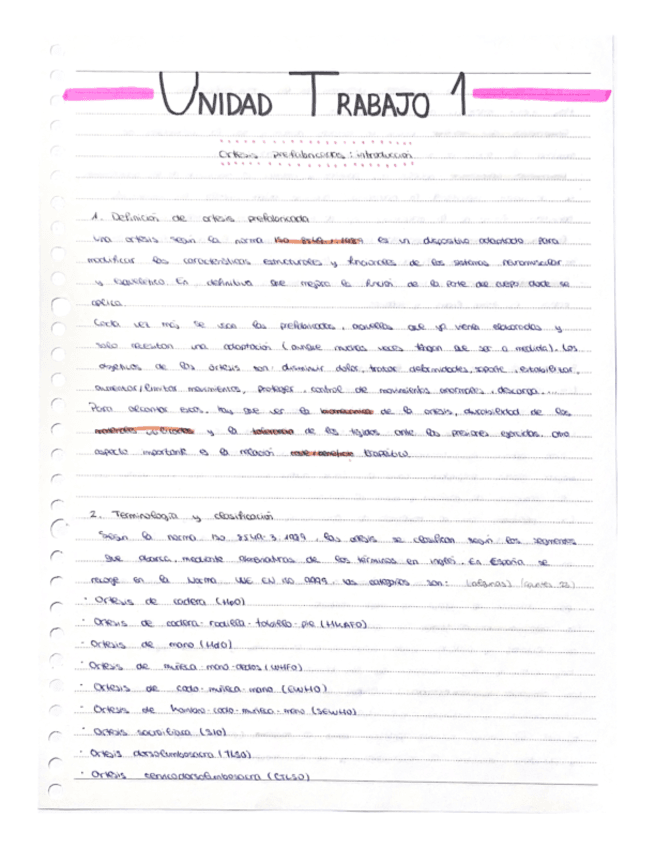 UNIDAD TRABAJO 1
Ortesis prefabricadas: introducción
1. Definición de ortesis prefabricada
Una ortesis según la norma ISO 8549.1:1989 es un dispositivo adaptado para
modificar las características estructurales y funcionales de los sistemas neuromuscular
y esquelético. En definitiva que mejora la función de la parte del cuerpo donde se
aplica.
Cada vez más se usan las prefabricadas, aquellas que ya vienen elaboradas y
solo necesitan una adaptación (aunque muchas veces tengan que ser a medida). Los
objetivos de las órtesis son: disminuir dolor, tratar deformidades, soporte, estabilizar,
aumentar/limitar movimientos, proteger, control de movimientos anormales, descarga,...
Para alcanzar esos, hay que ver la biomecánica de la ortesis, durabilidad de los
materiales utilizados y la tolerancia de los tejidos ante las presiones ejercidas. Otro
aspecto importante es la relación coste/beneficio terapéutico.
2. Terminología y clasificación
Según la norma ISO 8549.3:1989, las ortesis se clasifican según los segmentos
que abarca, mediante de los términos en inglés. En España se
recoge en la Norma UNE EN ISO 9999. Las categorías son: (algunas)
· Ortesis de cadera (HpO)
· Ortesis de cadera-rodilla-tobillo-pie (HKAFO)
· Ortesis de mano (HdO)
· Ortesis de muñeca-mano-dedos (WHFO)
· Ortesis de codo-muñeca-mano (EWHO)
· Ortesis de hombro-codo-muñeca-mano (SEWHO)
· Ortesis sacroilíaca (SIO)
· Ortesis dorsolumbosacra (TLSO)
· Ortesis cervicodorsolumbosacra (CTLSO)